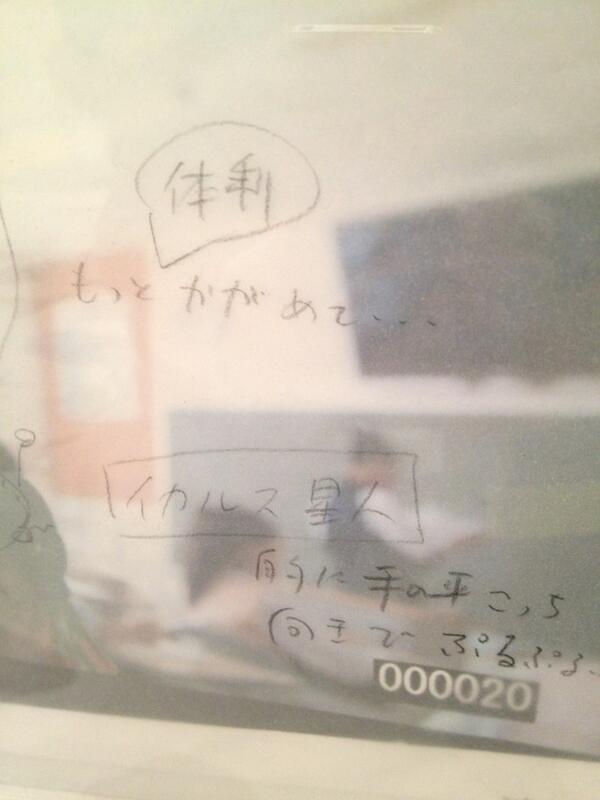 体利
もっと かがめて...
イカルス 星人
的に 手の平 こっち
向きで ぷるぷる..
000020